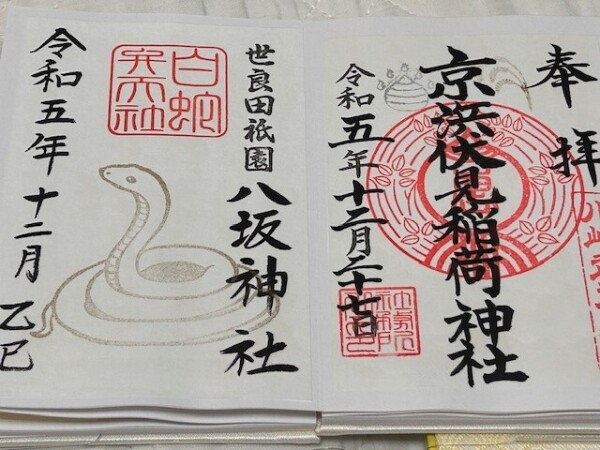 奉拝
京浜伏見稲荷神社
令和五年十二月二十七日
世良田祇園
八坂神社
白蛇
弁天社
令和五年十二月乙巳